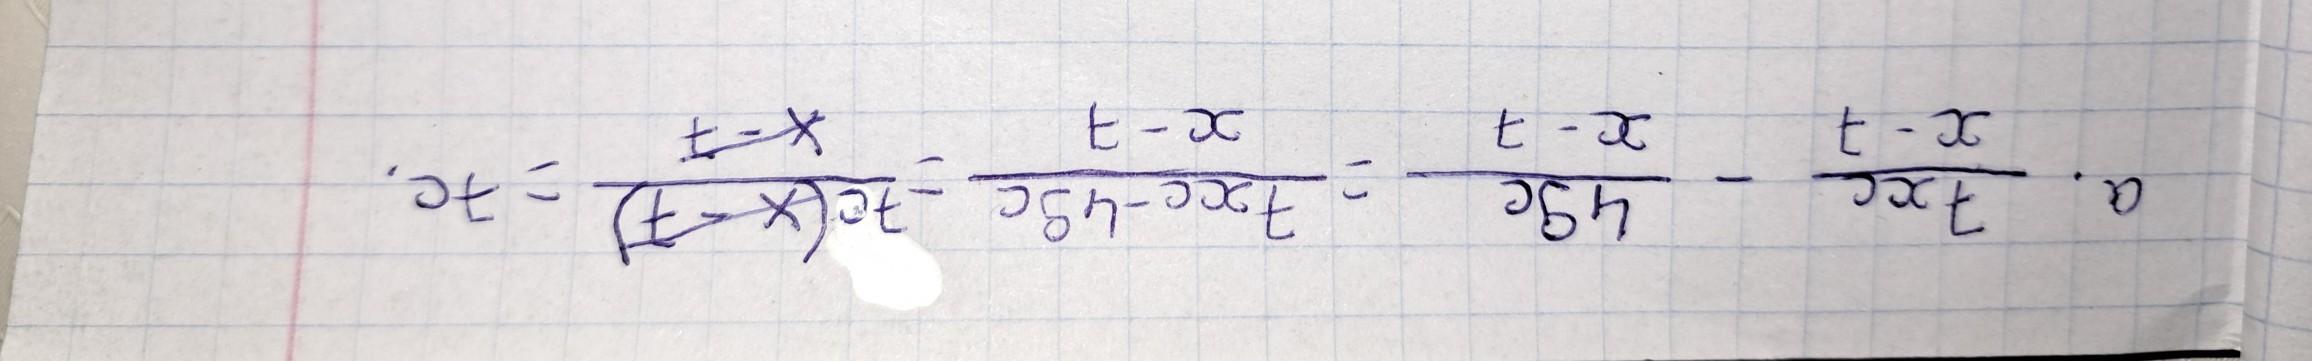 a. 7xc/(x-7) - 49c/(x-7) = (7xc-49c)/(x-7) = 7c(x-7)/(x-7) = 7c.